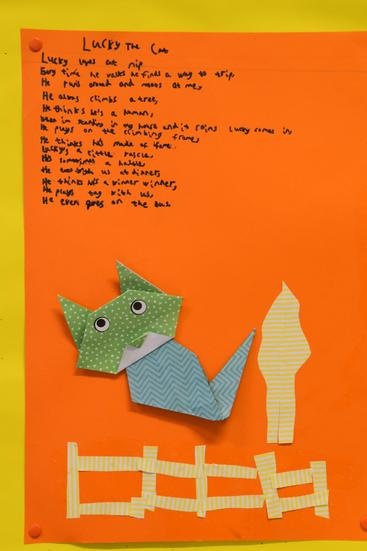 Lucky The Cat
Lucky loves cat nip
Every time he walks he finds a way to trip.
He purs around and meows at me,
He always climbs a tree,
He thinks he's a human,
When im standing in my house and it rains Lucky comes in,
He plays on the climbing frame,
He thinks he's made of fame.
Lucky's a little rascle,
He's sometimes a hassle,
He eats with us at dinner,
He thinks he's a winner winner,
He plays tag with us,
He even goes on the bus.